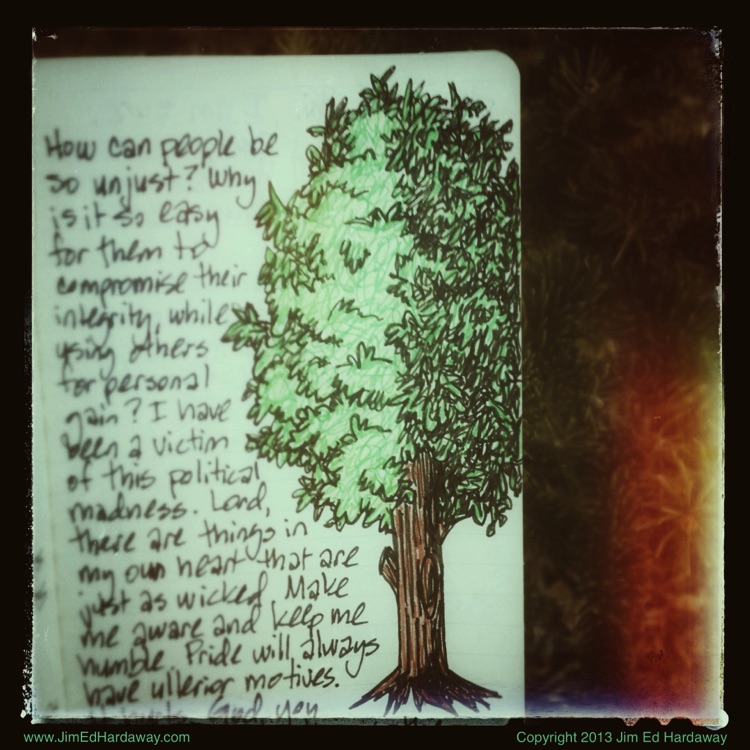 How can people be
so unjust? Why
is it so easy
for them to
compromise their
integrity, while
using others
for personal
gain? I have
been a victim
of this political
madness. Lord,
there are things in
my own heart that are
just as wicked. Make
me aware and keep me
humble. Pride will always
have ullerior motives.
God you
www.JimEdHardaway.com
Copyright 2013 Jim Ed Hardaway